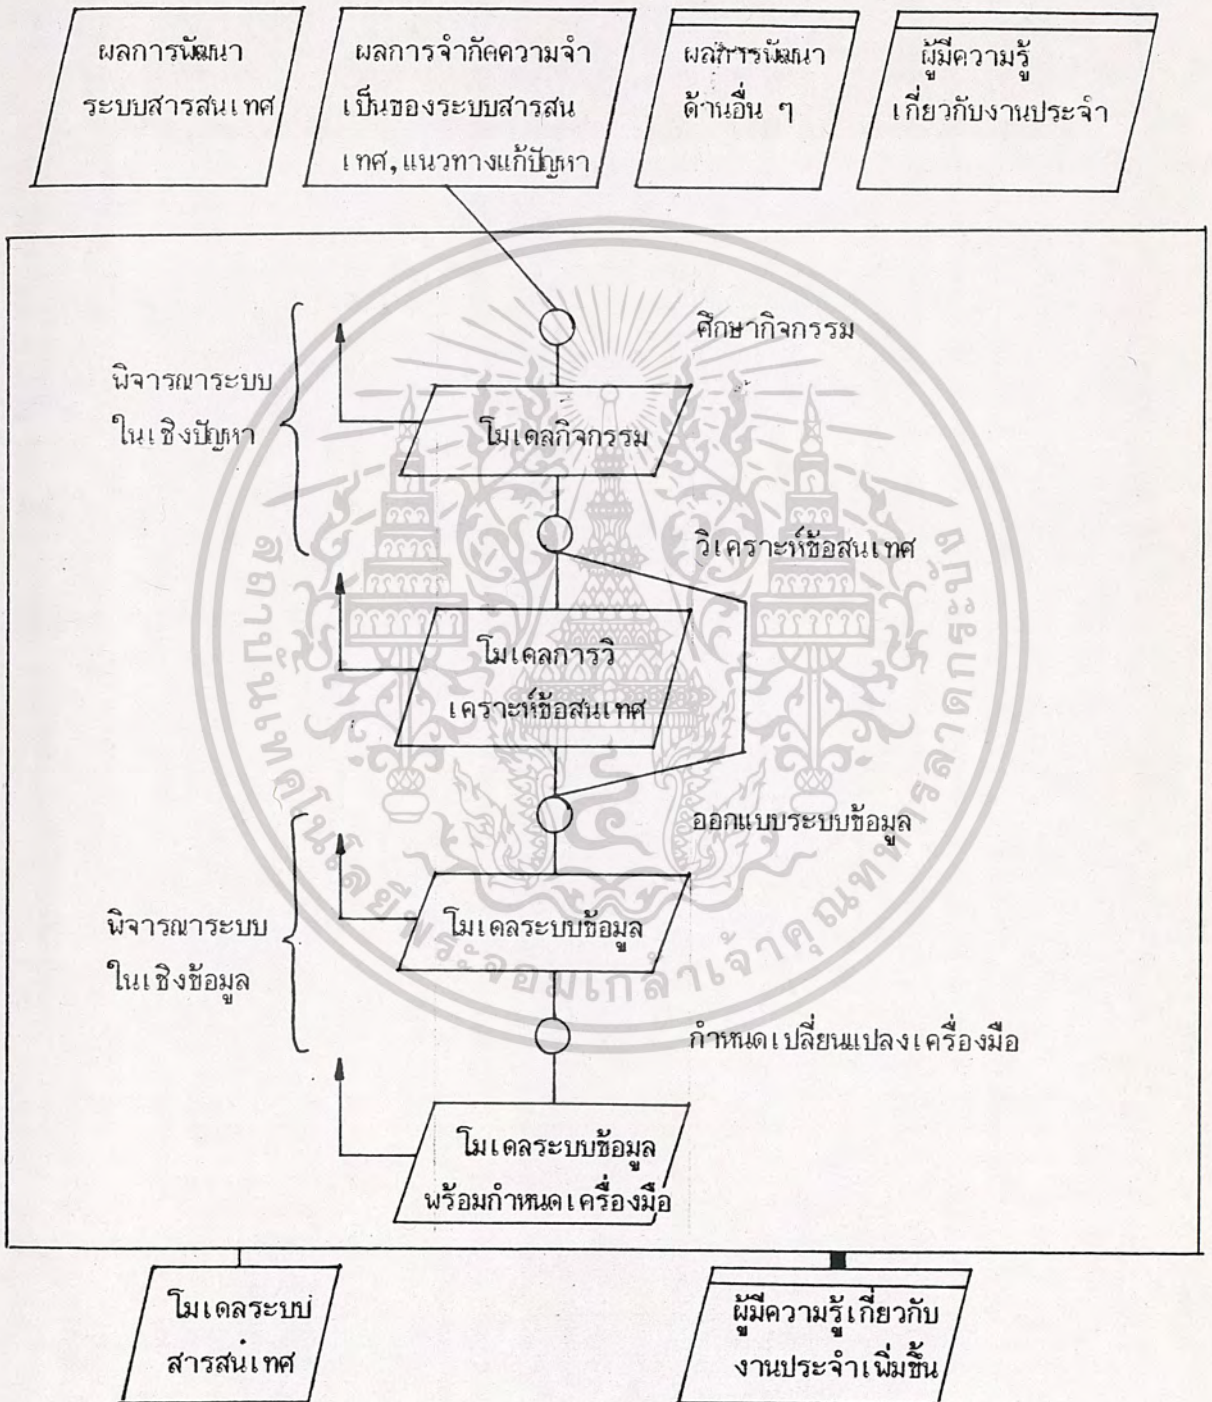 ผลการพัฒนา
ระบบสารสนเทศ
ผลการจำกัดความจำ
เป็นของระบบสารสน
เทศ,แนวทางแก้ปัญหา
ผลการพัฒนา
ด้านอื่น ๆ
ผู้มีความรู้
เกี่ยวกับงานประจำ
ศึกษากิจกรรม
พิจารณาระบบ
ในเชิงปัญหา
โมเดลกิจกรรม
วิเคราะห์ข้อสนเทศ
โมเดลการวิ
เคราะห์ข้อสนเทศ
ออกแบบระบบข้อมูล
พิจารณาระบบ
ในเชิงข้อมูล
โมเดลระบบข้อมูล
กำหนดเปลี่ยนแปลงเครื่องมือ
โมเดลระบบข้อมูล
พร้อมกำหนดเครื่องมือ
โมเดลระบบ
สารสนเทศ
ผู้มีความรู้เกี่ยวกับ
งานประจำเพิ่มขึ้น
สถาบันเทคโนโลยีพระจอมเกล้าเจ้าคุณทหารลาดกระบัง